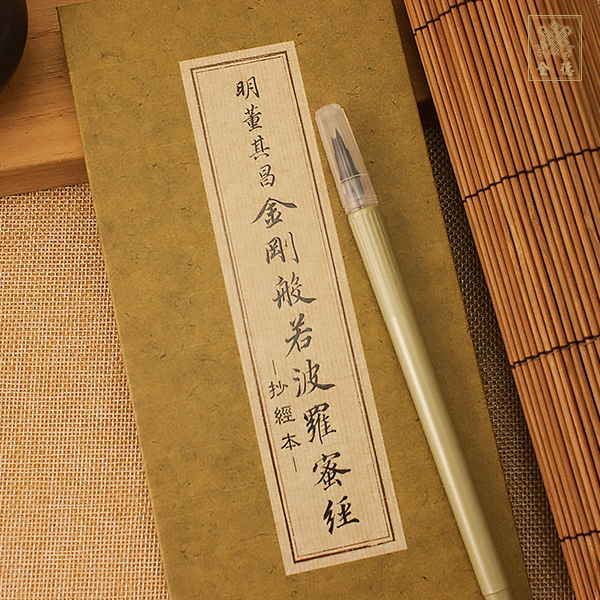 明董其昌金剛般若波羅蜜經
—抄經本—
金德